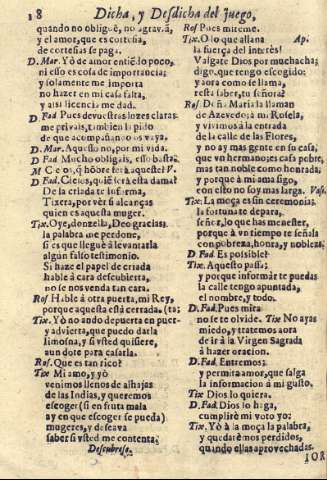 18 Dicha, y Desdicha del juego,
quando no obligue, no agrava,
y el amor, que es cortesia,
de cortesias se paga.
D. Mar. Yo de amor entiẽdo poco,
ni esso es cosa de importancia;
y solamente me importa
no hazer en mi casa falta,
y assi licencia me dad.
D. Fad. Pues de vuestras luzes claras
me privais, tambien la pido
de que acompañandoos vaya.
D. Mar. Aquesto no, por mi vida.
D. Fad. Mucho obligais, esso basta.
D. Fad. Cielos, quiẽ será esta dama?
De la criada te informa,
Tixera, por vèr si alcanças
quien es aquesta muger.
Tix. Oye, donzella, Deo gracias,
la palabra me perdone,
si es que lleguè à levantarla
algun falso testimonio.
Si haze el papel de criada
hable à cara descubierta,
no se nos venda tan cara.
Ros. Hable à otra puerta, mi Rey,
porque aquesta està cerrada;
Tix. Yo no ando de puerta en puerta
y advierta, que puedo darla
limosna, y si usted quisiere,
aun dote para casarla.
Ros. Que es tan rico?
Tix. Mi amo, y yo
venimos llenos de alhajas
de las Indias, y queremos
escoger (si en fruta mala
ay en que escoger se pueda)
mugeres, y deseava
saber si usted me contenta,
Descubrese.
Ros. Pues mireme.
Tix. O lo que allana Ap.
la fuerça del interès!
Valgate Dios por muchacha;
digo, que tengo escogido;
y aora como se llama,
resta saber, tu señora?
Ros. Doña Maria la llaman
de Azevedo; à mi Rosela,
y vivimos à la entrada
de la calle de las Flores,
y no ay mas gente en su casa,
que un hermano; es casa pobre,
mas tan noble como honrada;
y porque à mi ama sigo,
con esto no soy mas larga. Vase.
Tix. La moça es sin ceremonias;
la fortuna te depara,
señor, lo que has menester,
porque à un tiempo te señala
con pobreza, honra, y nobleza.
D. Fad. Es possible?
Tix. Aquesto passa;
y porque informar te puedas
la calle tengo apuntada,
el nombre, y todo.
D. Fad. Pues mira
no se te olvide. Tix. No ayas
miedo, y tratemos aora
de ir à la Virgen Sagrada
à hazer oracion.
D. Fad. Entremos;
y permita amor, que salga
la informacion à mi gusto,
Tix. Dios lo quiera.
D. Fad. Dios lo haga,
cumplirè mi voto yo;
Tix. Yo à la moça la palabra,
y quedarèmos perdidos,
quando ellas aprovechadas.